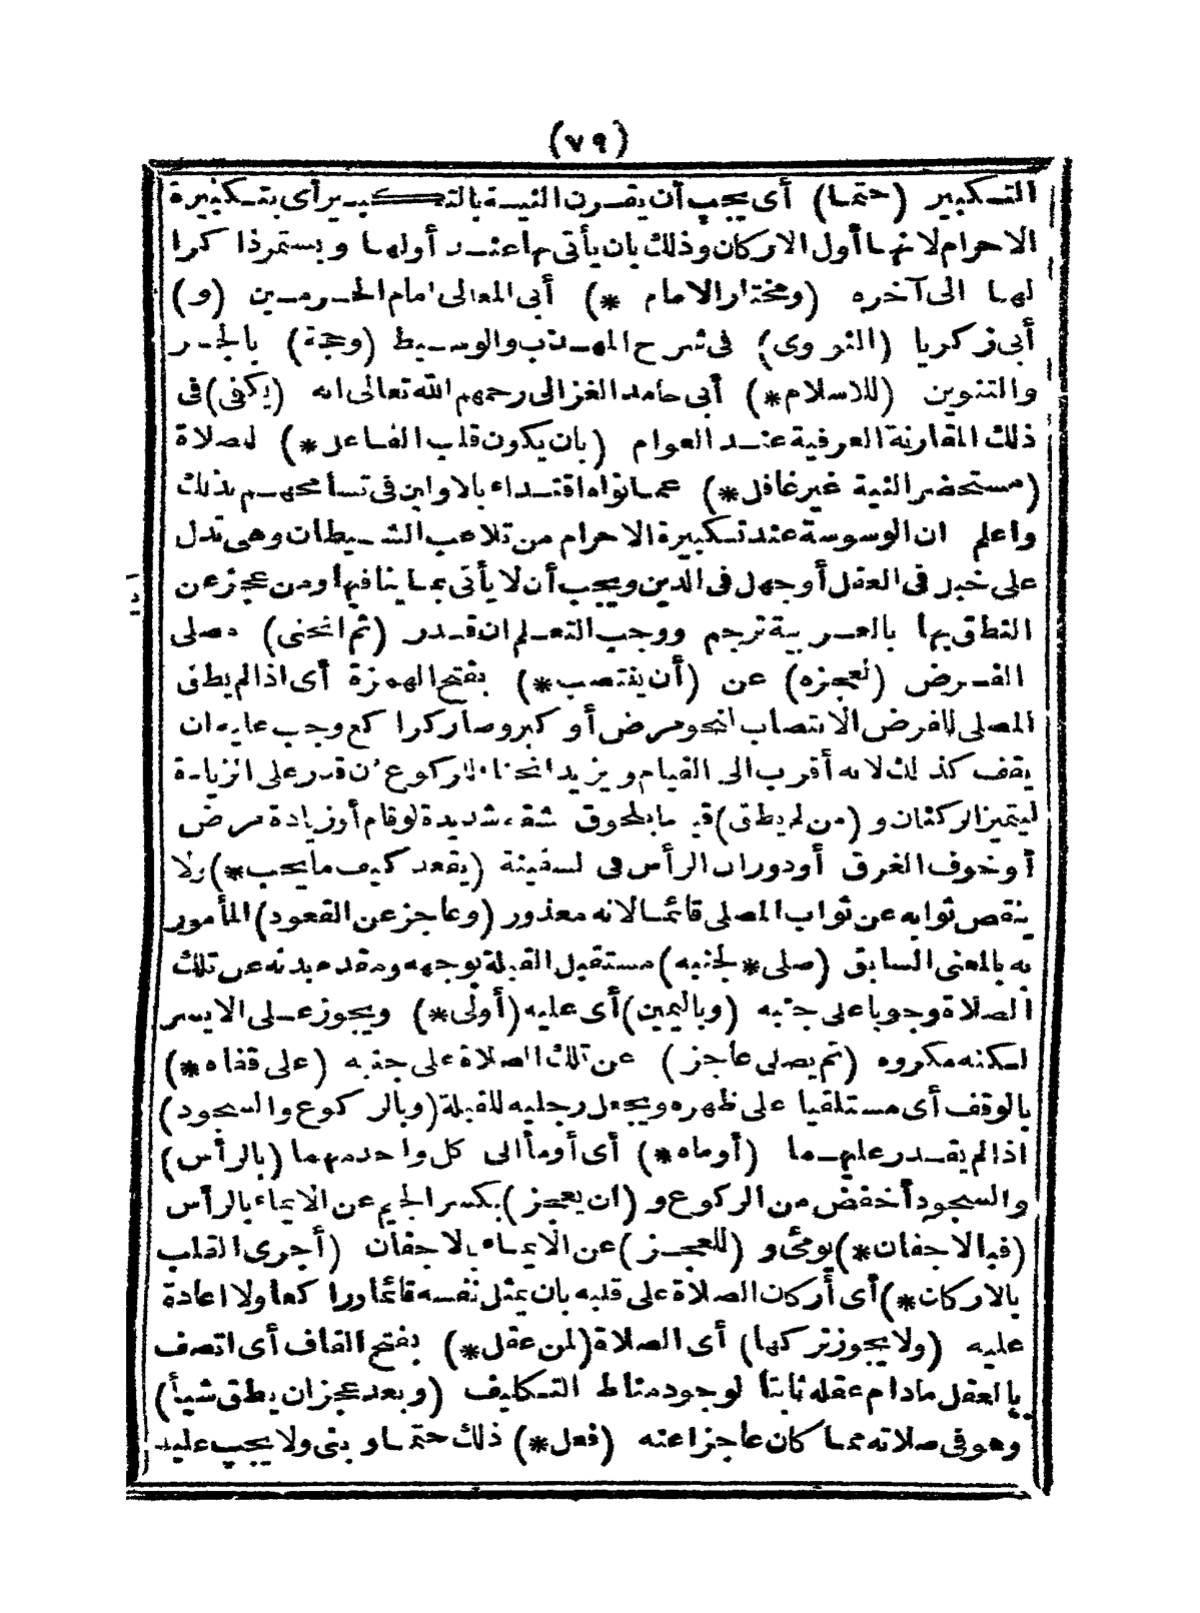 (٧٩)
التكبير (حتما) أى يجب أن يقرن النية بالتكبير أى بتكبيرة
الاحرام لانها أول الاركان وذلك بان يأتى بها عند أولها ويستمر ذا كرا
لها الى آخره (ومختار الامام *) أبى المعالى امام الحرمين (و)
أبى زكريا (النووى) فى شرح المهذب والوسيط (وحجة) بالجر
والتنوين (للاسلام*) أبى حامد الغزالى رحمهم الله تعالى انه (يكفى) فى
ذلك المقارنة العرفية عند العوام (بان يكون قلب الفاعل*) لصلاة
(مستحضر النية غير غافل*) عما نواه اقتداء بالاولين فى تسامحهم بذلك
واعلم ان الوسوسة عند تكبيرة الاحرام من تلاعب الشيطان وهى تدل
على خبل فى العقل أو جهل فى الدين ويجب أن لا يأتى بما ينافيها ومن عجز عن
النطق بها بالعربية ترجم ووجب التعلم ان قدر (ثم انحنى) مصلى
الفرض (لعجزه) عن (أن ينتصب*) بفتح الهمزة أى اذا لم يطق
المصلى للفرض الانتصاب لنحو مرض أو كبر وصار كراكع وجب عليه ان
يقف كذلك لانه أقرب الى القيام ويزيد انحناء للركوع ان قدر على الزيادة
ليتميز الركنان و (من لم يطق) قياما بلحوق مشقة شديدة لو قام أو زيادة مرض
أو خوف الغرق أو دوران الرأس فى السفينة (يقعد كيف ما يحب*) ولا
ينقص ثوابه عن ثواب المصلى قائما لانه معذور (وعاجز عن القعود) المأمور
به بالمعنى السابق (صلى* لجنبه) مستقبل القبلة بوجهه ومقدم بدنه عن تلك
الصلاة وجوبا على جنبه (وباليمين) أى عليه (أولى*) ويجوز على الايسر
لكنه مكروه (ثم يصلى عاجز) عن تلك الصلاة على جنبه (على قفاه*)
بالوقف أى مستلقيا على ظهره ويجعل رجليه للقبلة (وبالركوع والسجود)
اذا لم يقدر عليهما (أوماه*) أى أومأ الى كل واحد منهما (بالرأس)
والسجود أخفض من الركوع و (ان يعجز) بكسر الجيم عن الايماء بالرأس
(فبالاجفان*) يومئ و (للعجز) عن الايماء بالاجفان (أجرى القلب
بالاركان*) أى أركان الصلاة على قلبه بان يمثل نفسه قائما وراكعا ولا اعادة
عليه (ولا يجوز تركها) أى الصلاة (لمن عقل*) بفتح القاف أى اتصف
بالعقل مادام عقله ثابتا لوجود مناط التكليف (وبعد عجز ان يطق شيأ)
وهو فى صلاته مما كان عاجزا عنه (فعل*) ذلك حتما وبنى ولا يجب عليه